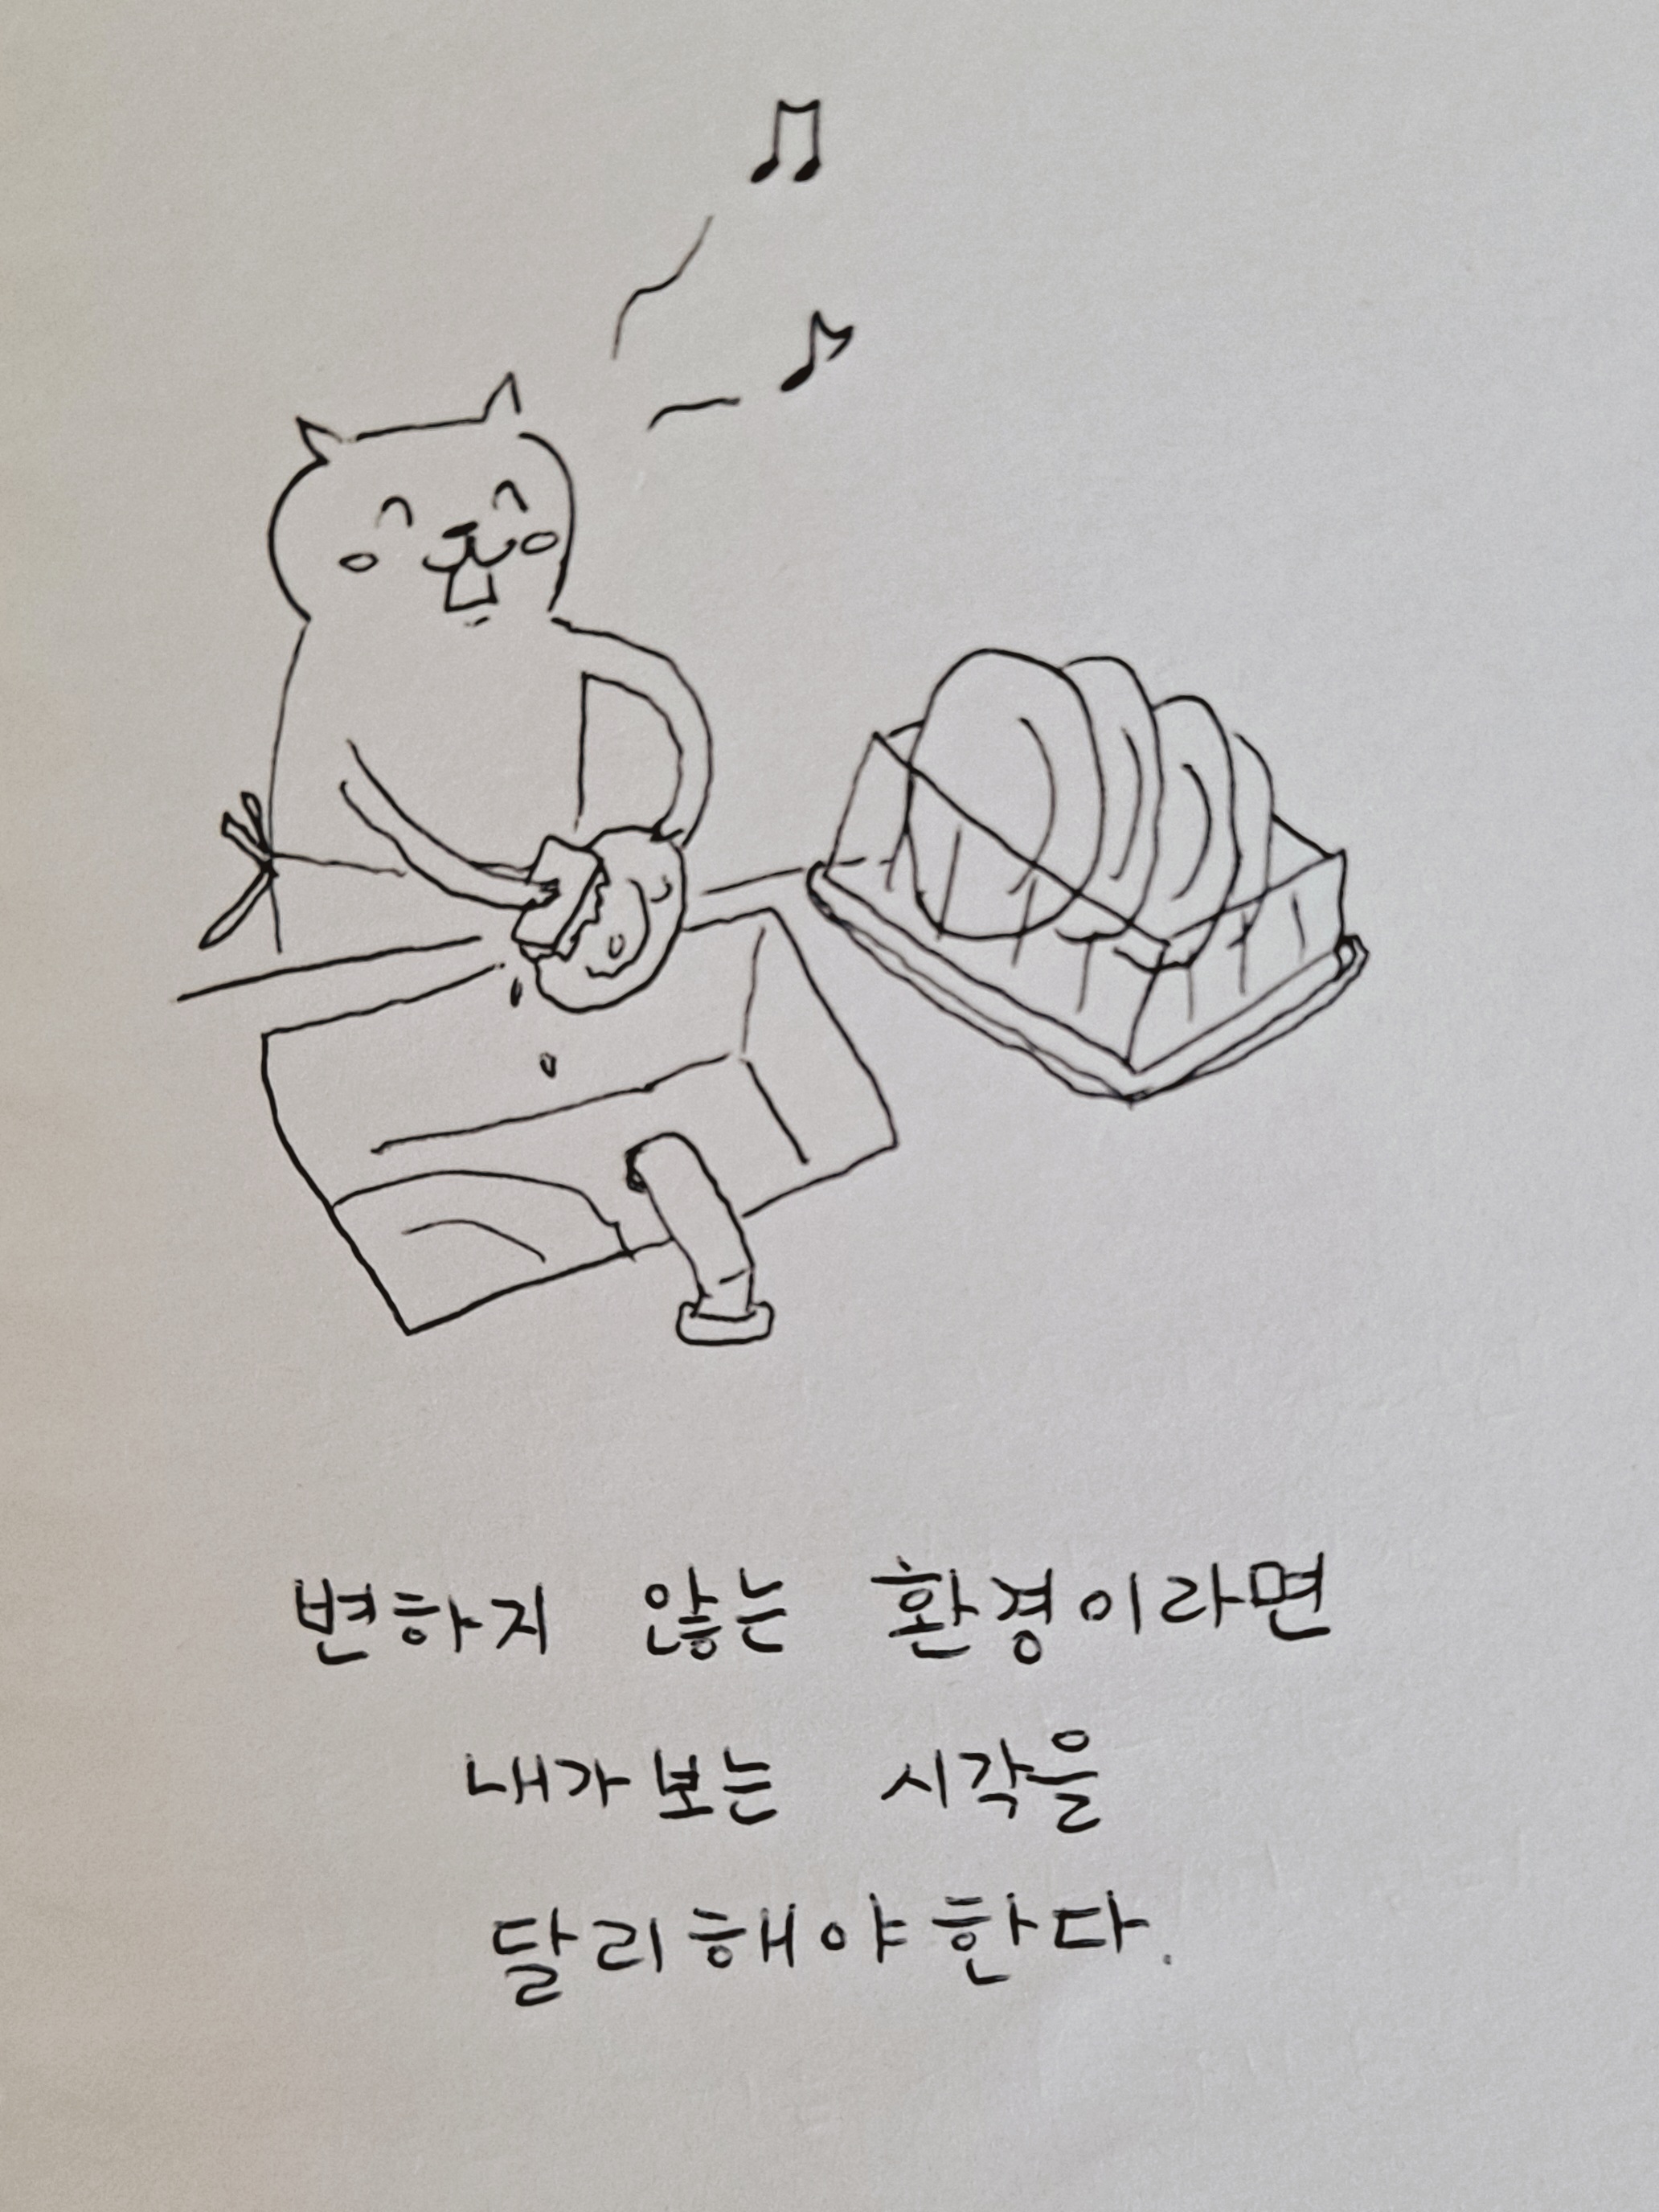 변하지 않는 환경이라면
내가 보는 시각을
달리해야한다.